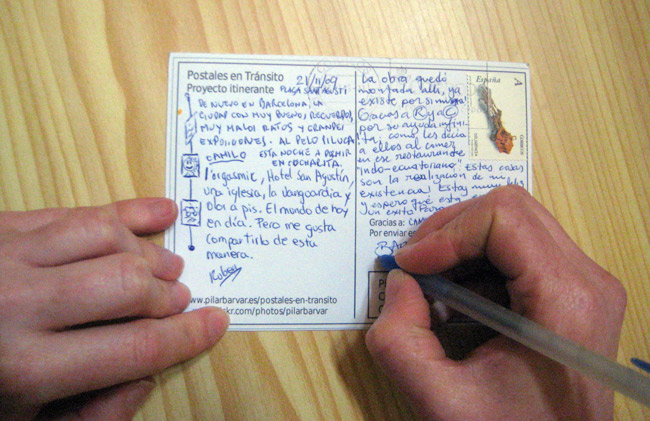 Postales en Tránsito
Proyecto itinerante
21/11/09
PLAÇA SANT AGUSTÍ
DE NUEVO EN BARCELONA; LA
CIUDAD CON MUY BUENOS, RECUERDOS,
MUY MALOS RATOS Y GRANDES
EXPOSICIONES. AL PELO PILUCA
CAMILO ESTA NOCHE A DORMIR
EN COCHARITA.
L'orgasmic, Hotel San Agustín,
una iglesia, la vanguardia y
olor a pis. El mundo de hoy
en día. Pero me gusta
compartirlo de esta
manera.
Ruben
www.pilarbarvar.es/postales-en-transito
kr.com/photos/pilarbarvar
La obra quedó
montada allí, ya
existe por si misma!
Gracias a R y a C
por su ayuda infini-
ta, como les decía
a ellos al comer
en ese restaurante
"indo-ecuatoriano" Estas cosas
son la realización de mi
existencia! Estoy muy feliz
y espero que esta
un exito
Gracias a: CAM
Por enviar es
BAR
España
CORREOS
A